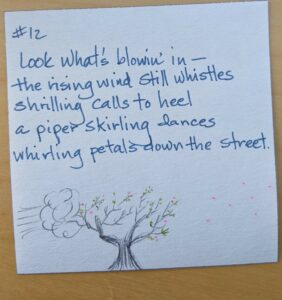 #12
Look what's blowin' in –
the rising wind still whistles
shrilling calls to heel
a piper skirling dances
whirling petals down the street.